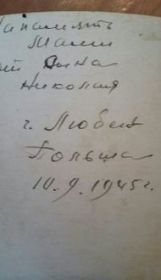 На память
Маши
от сына
Николая
г. Любен
Польша
10.9.1945г.